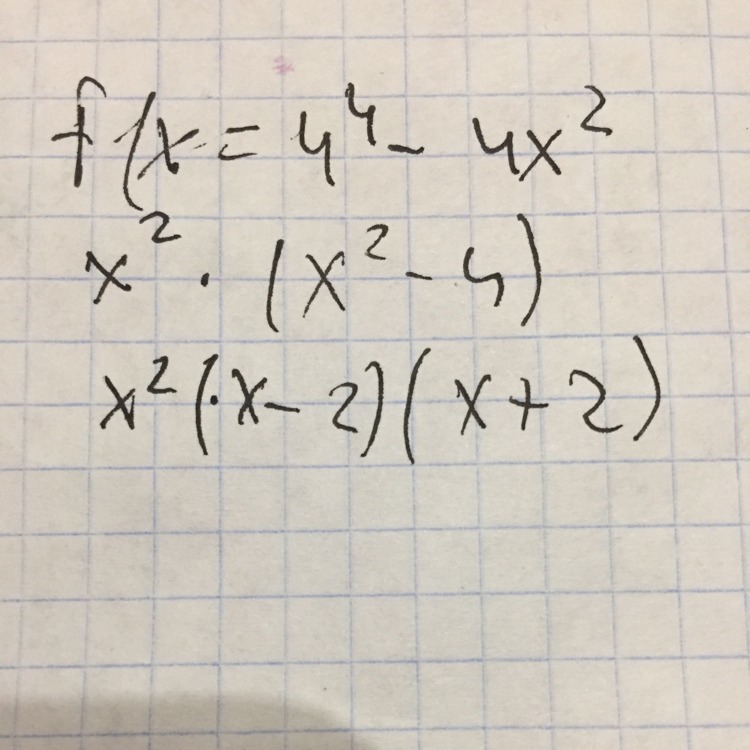 f(x = 4⁴ - 4x²
x² · (x² - 4)
x² (· x - 2) (x + 2)